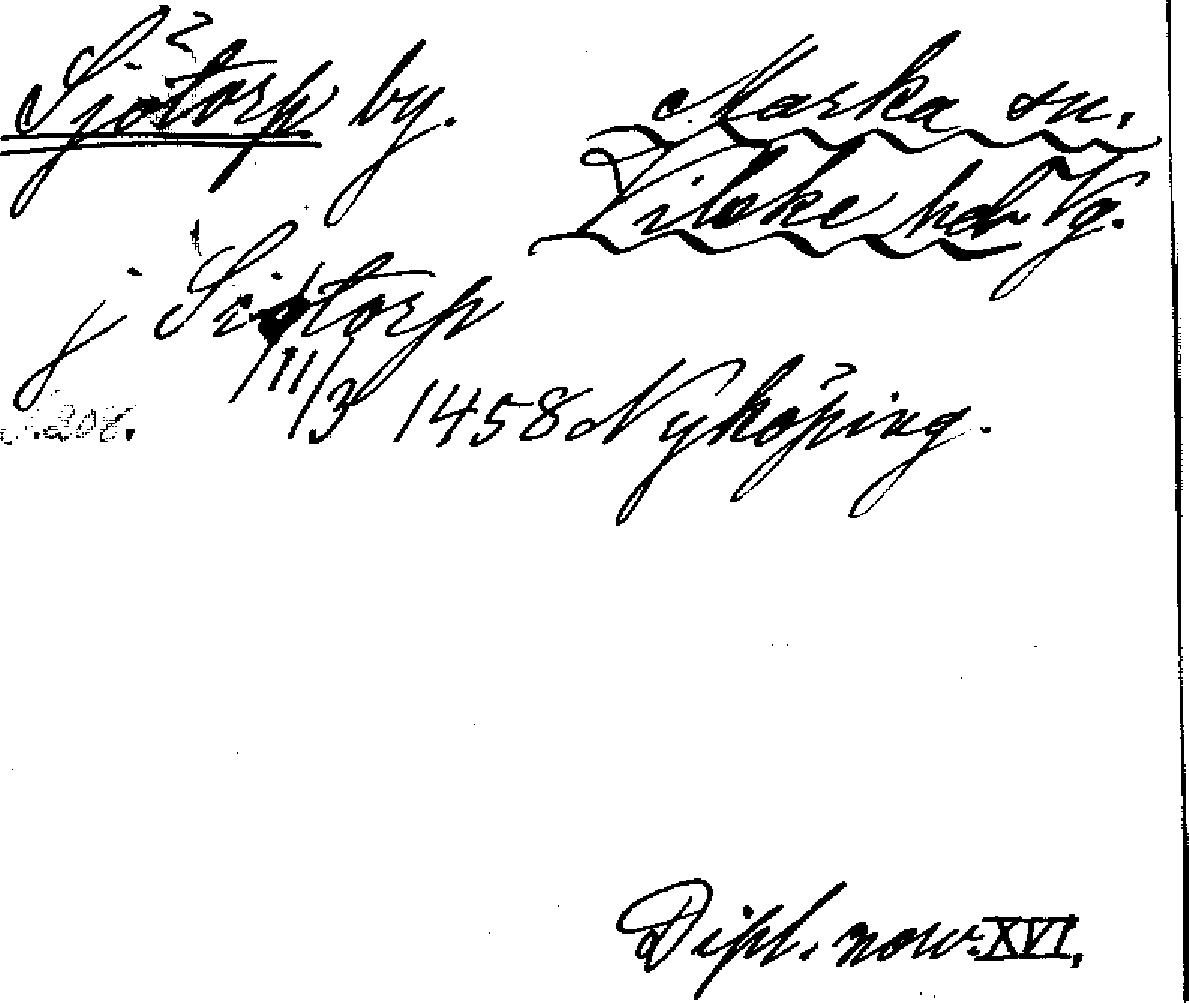 Sjötorp by.
Marka sn.
Vilske hd Vg.
j Siøtorp
11/3 1458 Nyköping.
s. 308.
Dipl. norv. XVI.